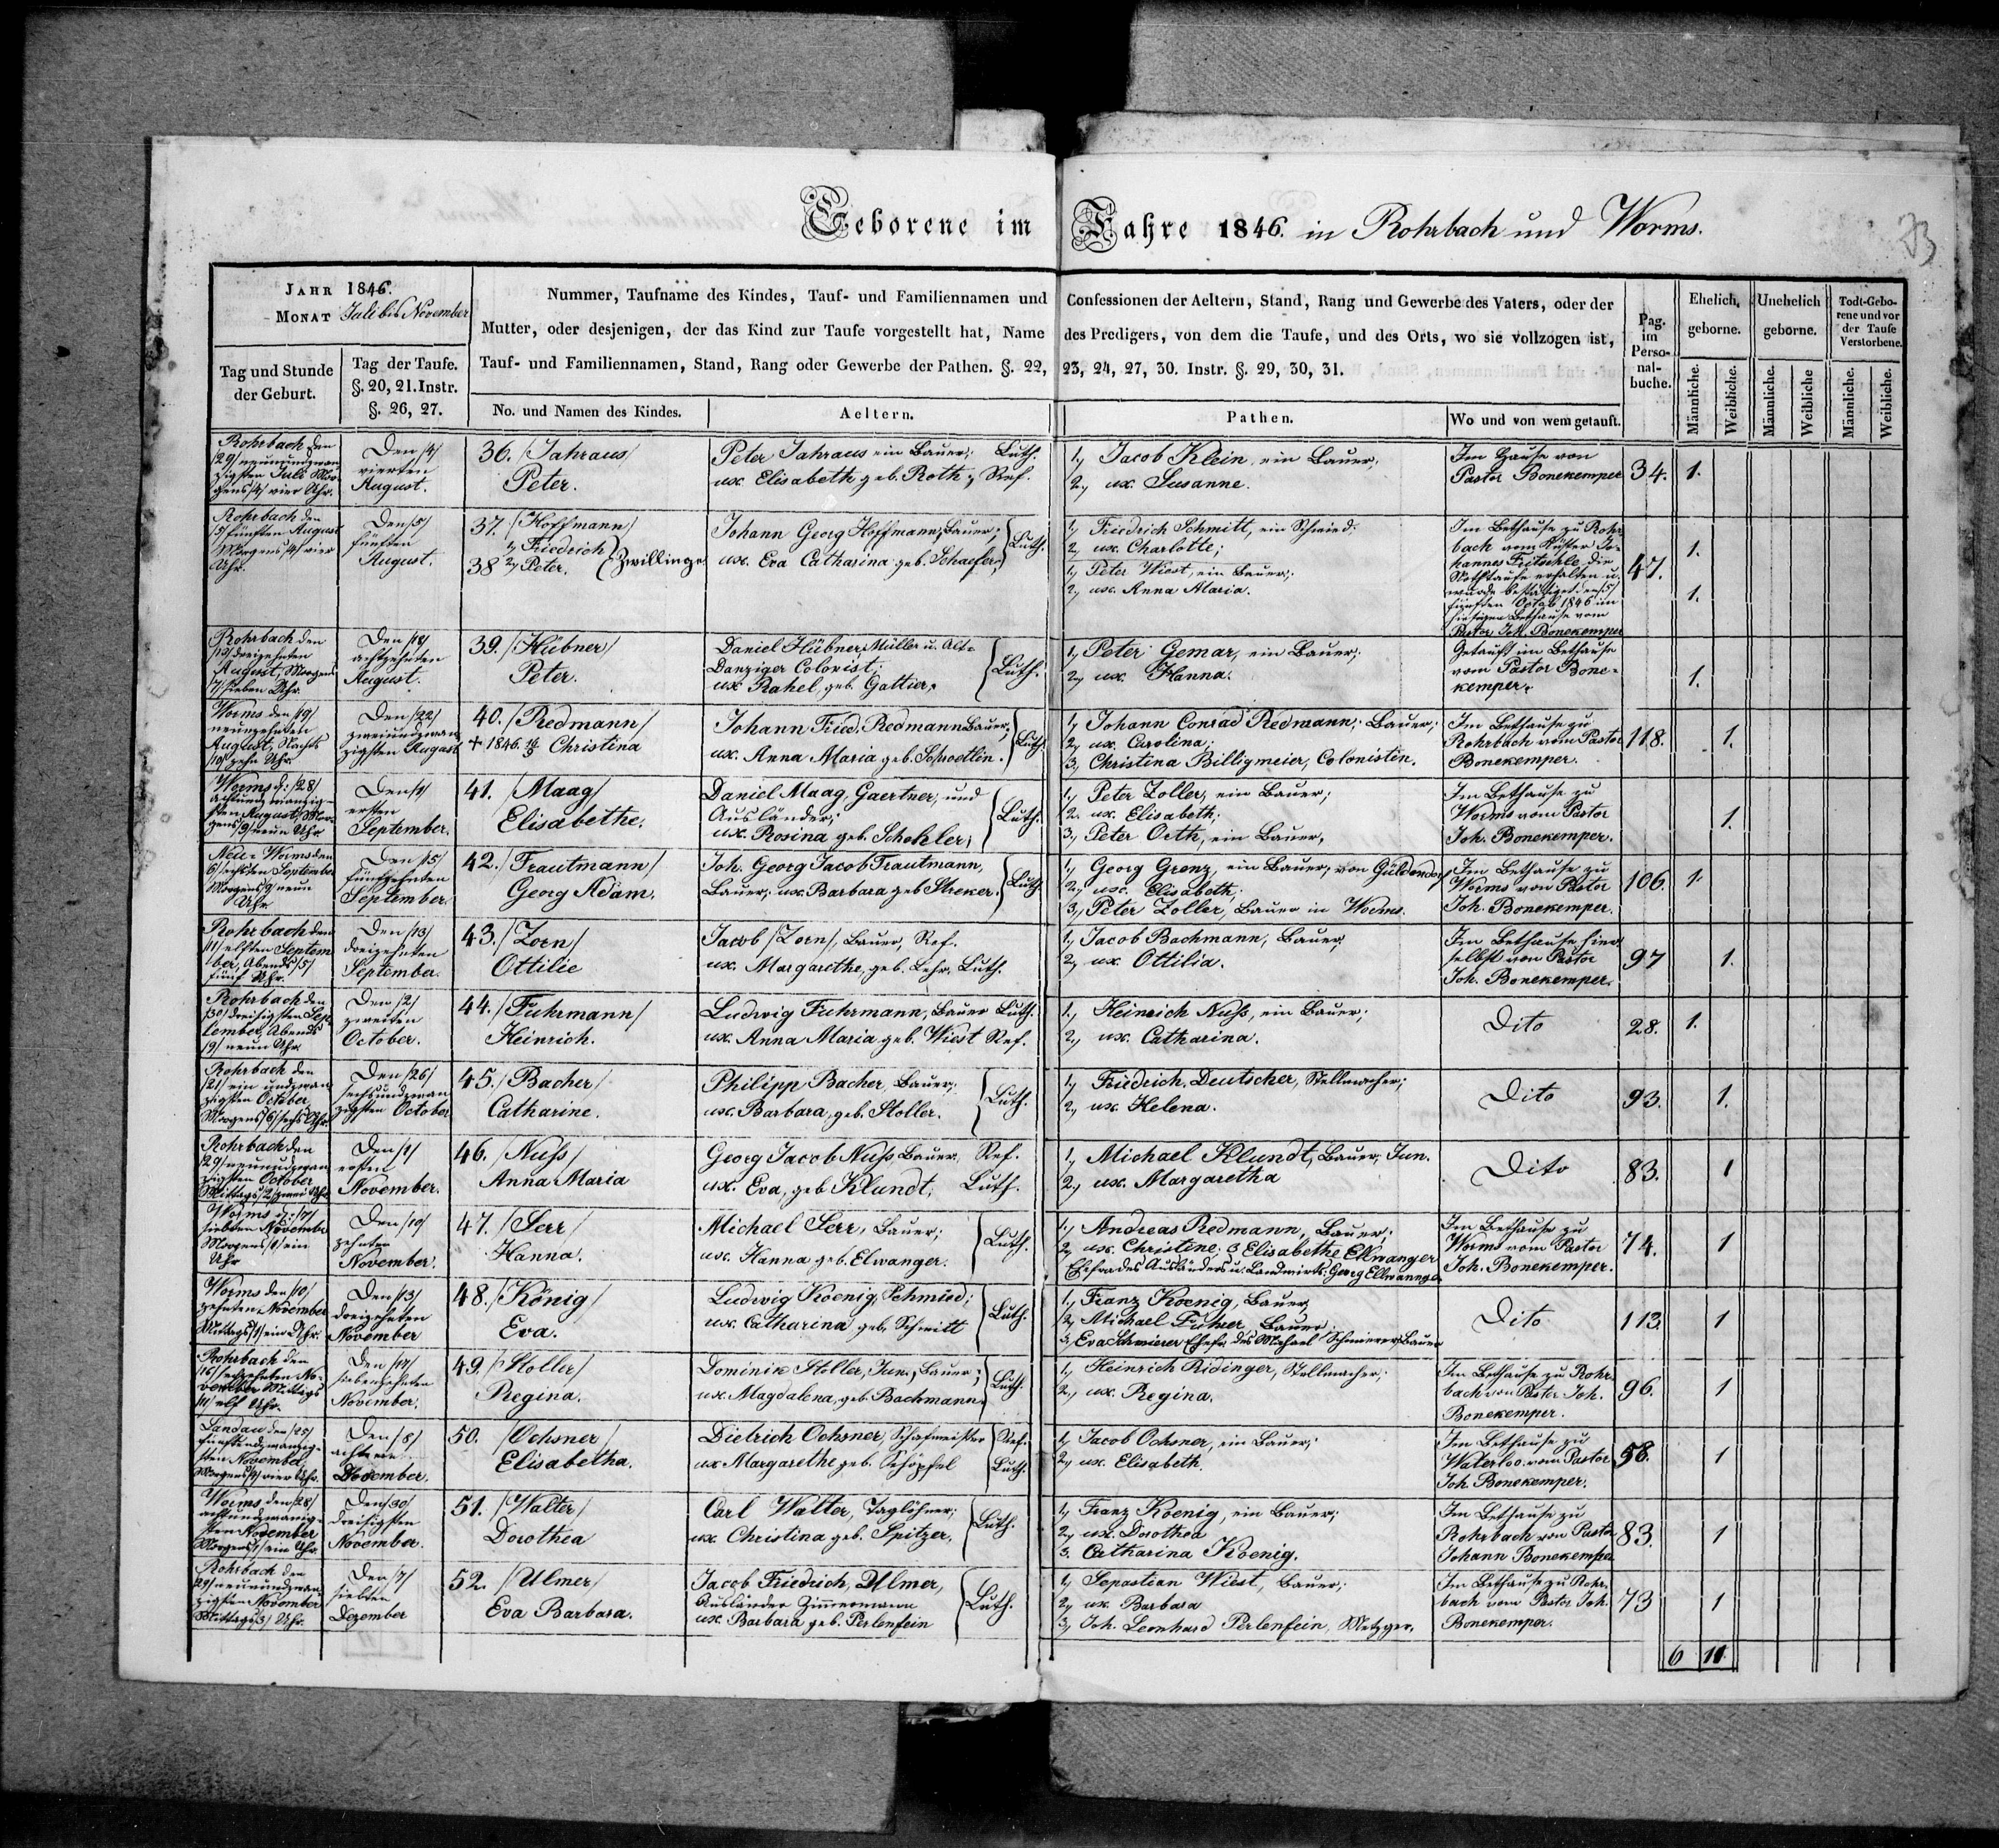 Geborene im Jahre 1846. in Rohrbach und Worms.
73
JAHR 1846.
MONAT Juli bis November
Nummer, Taufname des Kindes, Tauf- und Familiennamen und Confessionen der Aeltern, Stand, Rang und Gewerbe des Vaters, oder der
Mutter, oder desjenigen, der das Kind zur Taufe vorgestellt hat, Name des Predigers, von dem die Taufe, und des Orts, wo sie vollzogen ist,
Tauf- und Familiennamen, Stand, Rang oder Gewerbe der Pathen. §. 22, 23, 24, 27, 30. Instr. §. 29, 30, 31.
Tag und Stunde
der Geburt.
Tag der Taufe.
§. 20, 21. Instr.
§. 26, 27.
No. und Namen des Kindes.
Aeltern.
Pathen.
Wo und von wem getauft.
Pag.
im
Perso-
nal-
buche.
Ehelich,
geborne.
Unehelich
geborne.
Todt-Gebo-
rene und vor
der Taufe
Verstorbene.
Männliche.
Weibliche.
Männliche.
Weibliche
Männliche.
Weibliche.
Rohrbach den
/29/ neunundzwan
zigsten Juli Mor
gens /4/ vier Uhr.
Den /4/
vierten
August.
36. /Jahraus/
Peter.
Peter Jahraus ein Bauer; Luth.
ux. Elisabeth geb. Roth; Ref.
1, Jacob Klein, ein Bauer;
2, ux. Susanne.
Im Hause von
Pastor Bonekemper
34.
1.
Rohrbach den
/5/ fünften August
Morgens /4/ vier
Uhr.
Den /5/
fünften
August.
37. /Hoffmann/
1, Friedrich
38 2, Peter. } Zwillinge
Johann Georg Hoffmann, Bauer;
ux. Eva Catharina geb. Schaefer; } Luth.
1, Friedrich Schmitt, ein Schmied;
2, ux. Charlotte;
1, Peter Wiest, ein Bauer;
2, ux. Anna Maria.
Im Bethause zu Rohr
bach vom Küster Jo-
hannes Fritschle die
Nothtaufe erhalten u.
wurde bestätiget den /5/
fünften Octob 1846 im
hiesigen Bethause vom
Pastor Joh. Bonekemper
47.
1.
1.
Rohrbach den
/13/ dreizehnten
August, Morgens
/7/ sieben Uhr.
Den /18/
achtzehnten
August.
39. /Hübner/
Peter.
Daniel Hübner, Müller u. Alt-
Danziger Colonist;
ux Rahel, geb. Gattier, } Luth.
1, Peter Gemar, ein Bauer;
2, ux. Hanna.
Getauft im Bethause
vom Pastor Bone-
kemper.
1.
Worms den /19/
neunzehnten
August, Nachts
/10/ zehn Uhr.
Den /22/
zweiundzwan
zigsten August
40. /Redmann/
+ 1846. Christina
Johann Fried. Redmann Bauer,
ux. Anna Maria geb. Schoedlin. } Luth.
1, Johann Conrad Redmann; Bauer;
2, ux. Carolina;
3, Christina Billigmeier, Colonisten.
Im Bethause zu
Rohrbach vom Pastor
Bonekemper.
118.
1.
Worms d: /28/
achtundzwanzig-
sten August, Mor
gens /9/ neun Uhr
Den /1/
ersten
September.
41. /Maag/
Elisabethe.
Daniel Maag, Gaertner, und
Ausländer;
ux. Rosina geb. Schohler; } Luth.
1, Peter Zoller, ein Bauer;
2. ux. Elisabeth;
3, Peter Orth, ein Bauer,
Im Bethause zu
Worms vom Pastor
Joh. Bonekemper.
1.
Neu-Worms den
6/ sechsten September
Morgens /9/ neun
Uhr
Den /15/
fünfzehnten
September.
42. /Trautmann/
Georg Adam.
Joh. Georg Jacob Trautmann,
Bauer, ux. Barbara geb Streker. } Luth.
1, Georg Grenz, ein Bauer, von Güldendorf
2, ux. Elisabeth;
3, Peter Zoller, Bauer in Worms.
Im Bethause zu
Worms von Pastor
Joh. Bonekemper.
106.
1.
Rohrbach den
/11/ elften Septem
ber, Abends /5/
fünf Uhr.
Den /13/
dreizehnten
September.
43. /Zorn/
Ottilie
Jacob /Zorn/, Bauer, Ref.
ux. Margarethe, geb. Lehr, Luth.
1, Jacob Bachmann, Bauer;
2, ux. Ottilia.
Im Bethause hier
selbst von Pastor
Joh. Bonekemper.
97
1.
Rohrbach den
/30/ dreisigsten Sep
tember, Abends
/9/ neun Uhr.
Den /2/
zweiten
October.
44. /Fuhrmann/
Heinrich.
Ludwig Fuhrmann, Bauer Luth.
ux. Anna Maria geb. Wiest Ref.
1., Heinrich Nuss, ein Bauer;
2., ux. Catharina.
Dito
28.
1.
Rohrbach den
/21/ ein undzwan
zigsten October
Morgens /6/ sechs Uhr.
Den /26/
sechsundzwan
zigsten October
45. /Bacher/
Catharine.
Philipp Bacher, Bauer;
ux. Barbara, geb. Stoller. } Luth.
1, Friedrich Deutscher, Stellmacher;
2, ux. Helena.
Dito
93.
1.
Rohrbach den
/29/ neunundzwan
zigsten October
Mittags /2/ zwei Uhr
Den /1/
ersten
November.
46. /Nuss/
Anna Maria
Georg Jacob Nuss, Bauer, Ref.
ux. Eva, geb Klundt; Luth.
1, Michael Klundt, Bauer, Jun.
2, ux. Margaretha
Dito
83.
1
Worms d: /7/
siebten November
Morgens /1/ ein
Uhr
Den /10/
zehnten
November.
47. /Serr/
Hanna.
Michael Serr, Bauer;
ux. Hanna geb. Elwanger. } Luth.
1, Andreas Redmann, Bauer;
2, ux. Christine, 3 Elisabethe Elwanger
Ehefrau des Ausländers u. Landwirts: Georg Ellwanger.
Im Bethause zu
Worms vom Pastor
Joh. Bonekemper.
74.
1
Worms den /10/
zehnten November
Mittags /1/ ein Uhr.
Den /13/
dreizehnten
November
48. /König/
Eva.
Ludwig Koenig, Schmied;
ux. Catharina geb. Schmitt } Luth.
1, Franz Koenig, Bauer,
2, Michael Fuhrer, Bauer;
3, Eva Schmierer Ehefr. des Michael Schmierer, Bauer
Dito
113.
1
Rohrbach den
/16/ sechzehnten No-
vember Mittags
/11/ elf Uhr.
Den /17/
siebenzehnten
November.
49. /Stoller/
Regina.
Dominik Stoller, Jun., Bauer;
ux. Magdalena, geb. Bachmann } Luth.
1, Heinrich Ridinger, Stellmacher;
2, ux. Regina.
Im Bethause zu Rohr-
bach von Pastor Joh.
Bonekemper.
96.
1
Landau den /25/
fünfundzwanzig-
sten November,
Morgens /4/ vier Uhr.
Den /8/
achten
50. /Ochsner/
Elisabetha.
Dietrich Ochsner, Schafmeister Ref.
ux Margarethe geb. Schöpfel Luth.
1, Jacob Ochsner, ein Bauer;
2, ux. Elisabeth.
Im Bethause zu
Waterloo vom Pastor
Joh Bonekemper.
58.
1
Worms den /28/
achtundzwanzig-
sten November
Morgens /1/ ein Uhr.
Den /30/
dreisigsten
November.
51. /Walter/
Dorothea
Carl Walter, Taglöhner;
ux. Christina geb. Spitzer, } Luth.
1, Franz Koenig, ein Bauer;
2, ux. Dorothea
3. Catharina Koenig.
Im Bethause zu
Rohrbach von Pastor
Johann Bonekemper
83.
1
Rohrbach den
/29/ neunundzwan
zigsten November
Mittags /3/ Uhr.
Den /7/
siebten
Dezember
52. /Ulmer/
Eva Barbara.
Jacob Friedrich Ulmer,
Ausländer Zimmermann
ux. Barbara geb. Perlenfein } Luth.
1, Sepastian Wiest, Bauer;
2, ux. Barbara
3, Joh. Leonhard Perlenfein, Metzger,
Im Bethause zu Rohr,
bach vom Pastor Joh.
Bonekemper.
73
1
6 11